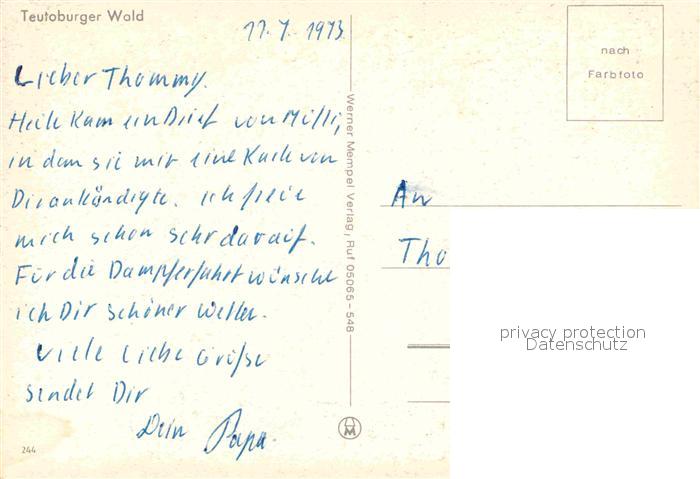 Teutoburger Wald
11.7.1973
Lieber Thommy.
Heute kam ein Brief von Milli,
in dem sie mir eine Karte von
Dir ankündigte. Ich freue
mich schon sehr darauf.
Für die Dampferfahrt wünsche
ich Dir schönes Wetter.
Viele liebe Grüße
sendet Dir
Dein Papa.
244
Werner Mempel Verlag, Ruf 05065-548
M
nach
Farbfoto
An
Tho
privacy protection
Datenschutz